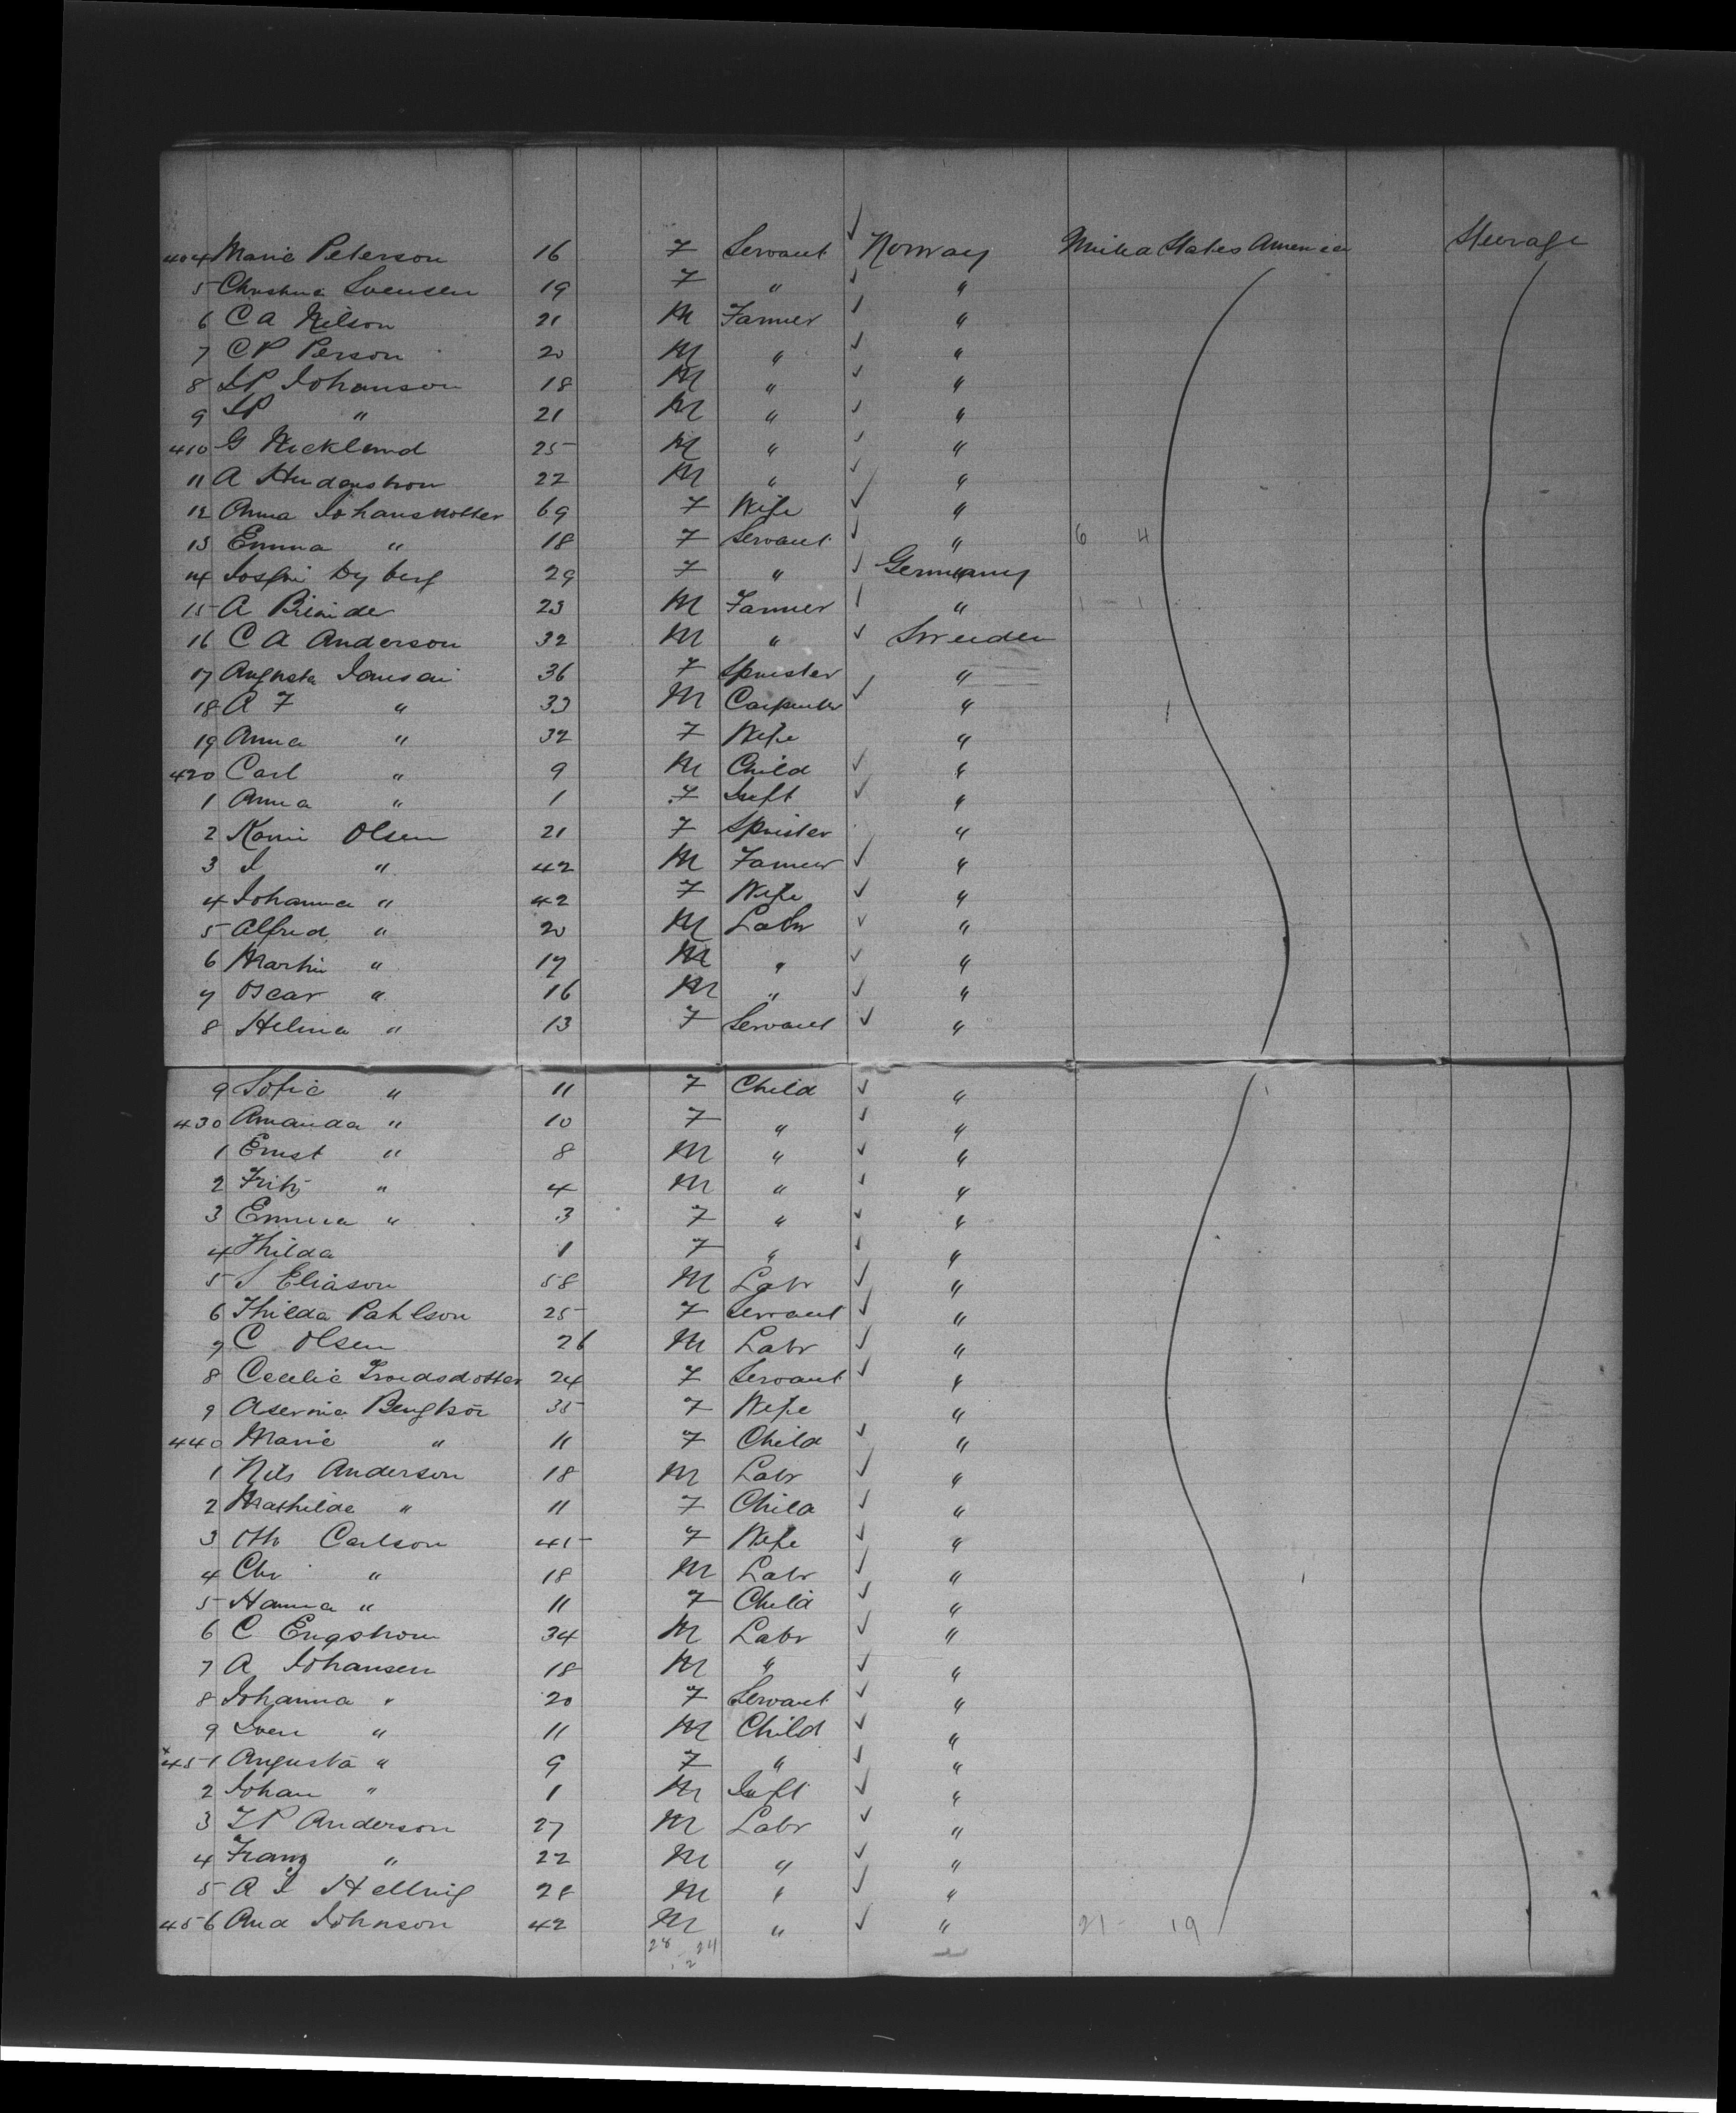 404 Marie Peterson 16 F Servant ✓ Norway United States America Steerage
5 Christina Svensen 19 F " ✓ "
6 C A Nilson 21 M Farmer ✓ "
7 C P Person 20 M " ✓ "
8 S P Johanson 18 M " ✓ "
9 S P " 21 M " ✓ "
410 G Wicklund 25 M " ✓ "
11 A 22 M " ✓ "
12 Anna Johansdotter 69 F Wife ✓ "
13 Emma " 18 F Servant ✓ " 6 4
14 Dyberg 29 F " ✓ Germany
15 A 23 M Farmer ✓ " 1 - 1
16 C A Anderson 32 M " ✓ Sweden
17 Augusta 36 F Spinster "
18 A F " 33 M Carpenter ✓ "
19 Anna " 32 F Wife "
420 Carl " 9 M Child ✓ "
1 Anna " 1 F Inft ✓ "
2 Olsen 21 F Spinster "
3 J " 42 M Farmer ✓ "
4 Johanna " 42 F Wife ✓ "
5 Alfred " 20 M Labr ✓ "
6 Martin " 17 M " ✓ "
7 Oscar " 16 M " ✓ "
8 Helina " 13 F Servant ✓ "
9 Sofie " 11 F Child ✓ "
430 Amanda " 10 F " ✓ "
1 Ernst " 8 M " ✓ "
2 Fritz " 4 M " ✓ "
3 Emma " 3 F " ✓ "
4 Thilda 1 F " ✓ "
5 S Eliason 58 M Labr ✓ "
6 Thilda Pahlson 25 F Servant ✓ "
7 C Olsen 26 M Labr ✓ "
8 Cecelie Troedsdotter 24 F Servant ✓ "
9 Bengtson 35 F Wife "
440 Marie " 11 F Child ✓ "
1 Nils Anderson 18 M Labr ✓ "
2 Mathilde " 11 F Child ✓ "
3 Carlson 45 F Wife ✓ "
4 Chr " 18 M Labr ✓ "
5 Hanna " 11 F Child ✓ "
6 C Engstrom 34 M Labr ✓ "
7 A Johansen 18 M " ✓ "
8 Johanna " 20 F Servant ✓ "
9 Sven " 11 M Child ✓ "
x451 Augusta " 9 F " ✓ "
2 Johan " 1 M Inft ✓ "
3 P Anderson 27 M Labr ✓ "
4 Franz " 22 M " ✓ "
5 A J Hellvig 28 M " ✓ "
456 And Johnson 42 M " ✓ " 21 - 19
28 24
2